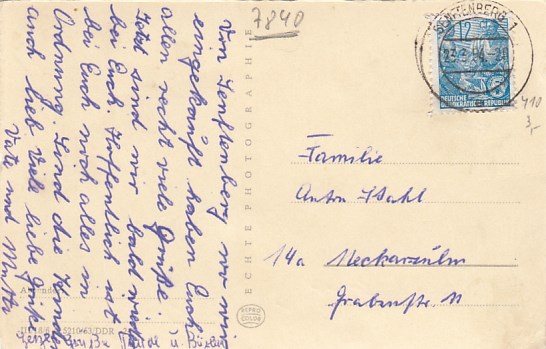 7840
Von Senftenberg wo wir
eingekauft haben Euch
allen recht viele Grüße.
Jetzt sind wir bald wieder
bei Euch. Hoffentlich ist
bei Euch noch alles in
Ordnung. Sind die Kinder
auch lieb Viele liebe Grüße
Vater und Mutter
ECHTE PHOTOGRAPHIE
SENFTENBERG
12
DEUTSCHE
DEMOKRATISCHE REPUBLIK
410
3,-
Familie
Anton
14a Neckarsulm
Grabenstr. 11
REPRO
COLOR
DDR
Grüße u.